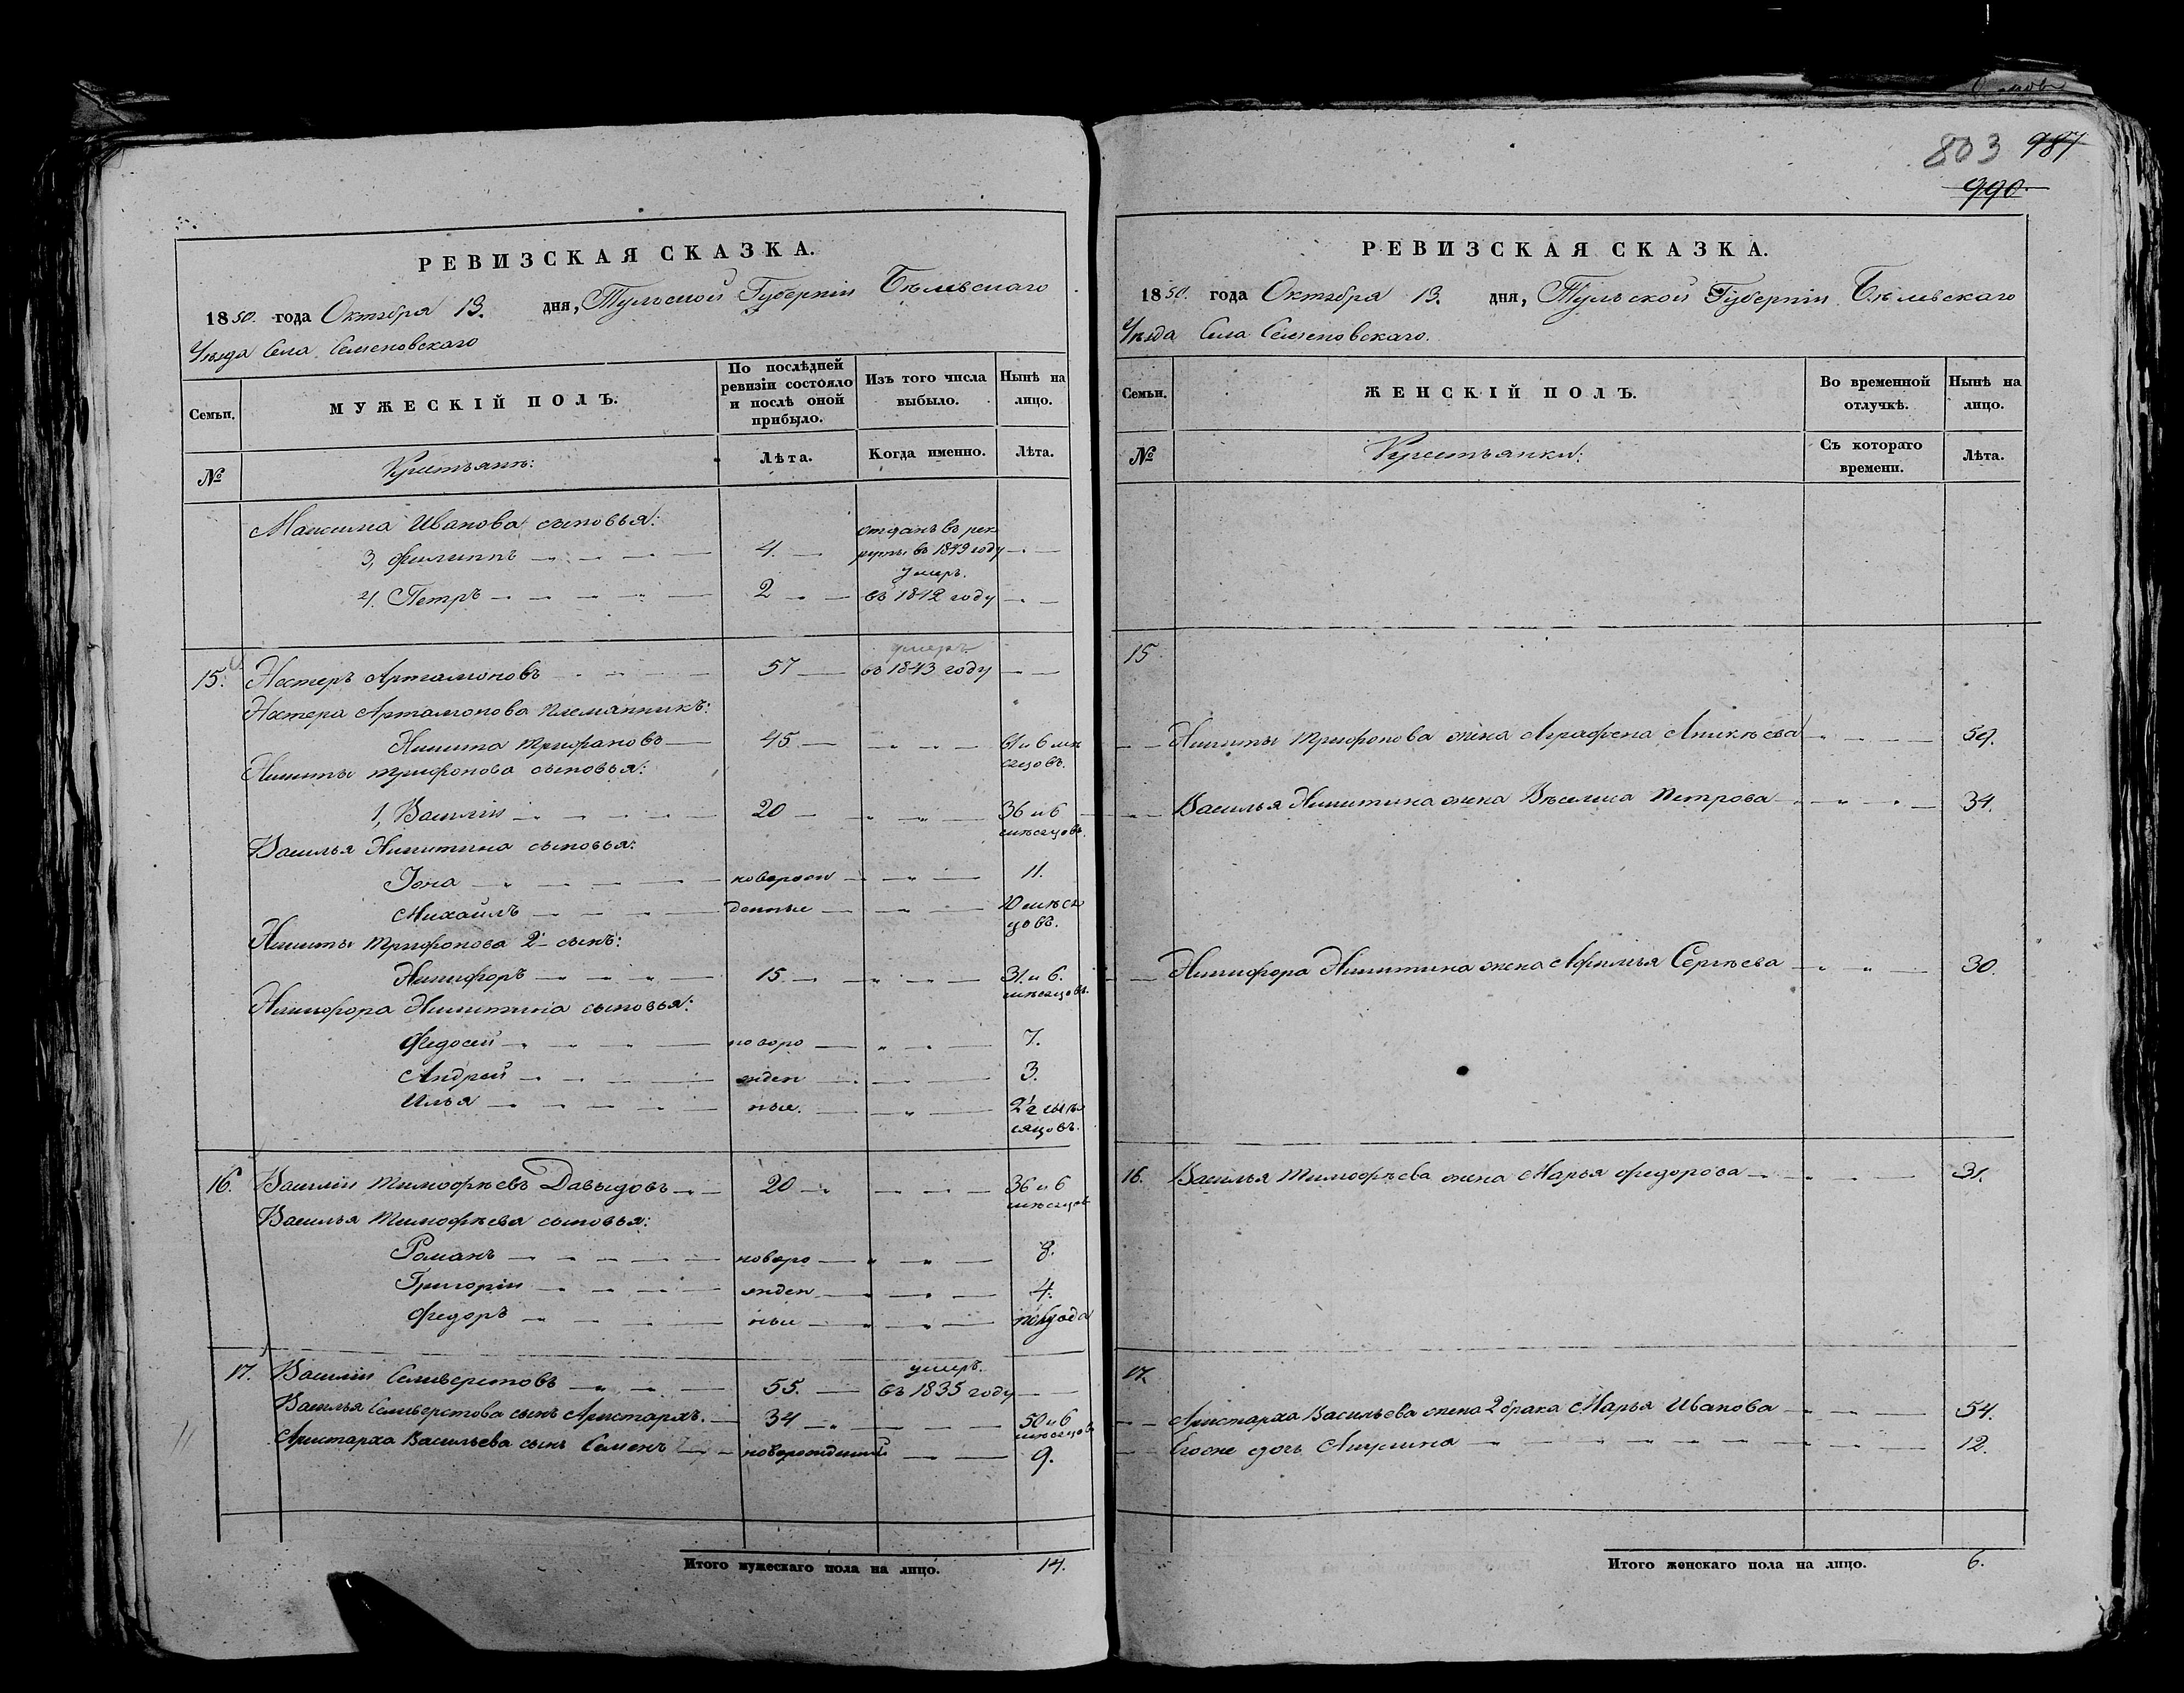 803 987
990.
РЕВИЗСКАЯ СКАЗКА.
1850. года Октября 13. дня, Тульской Губерніи Бѣлевскаго
Уѣзда Села Семеновскаго
Семьи.
МУЖЕСКІЙ ПОЛЪ.
По послѣдней ревизіи состояло и послѣ оной прибыло.
Изъ того числа выбыло.
Нынѣ на лицо.
№
Крестьянъ:
Лѣта.
Когда именно.
Лѣта.
Максима Иванова сыновья:
отданъ въ рек
3, Филиппъ 4. руты въ 1849 году
умеръ.
4. Петръ 2 въ 1842 году
умеръ
15. Нестеръ Артамоновъ 57 въ 1843 году
Нестера Артамонова племянникъ:
Никита Трифановъ 45 61 и 6 мѣ
Никиты Трифонова сыновья: сяцовъ.
1, Василій 20 36 и 6
мѣсяцовъ.
Василья Никитина сыновья:
Іона новорож 11.
Михаилъ денные 10 мѣся
цовъ.
Никиты Трифонова 2й сынъ:
Никифоръ 15. 31. и 6.
мѣсяцовъ.
Никифора Никитина сыновья:
Федосей новоро 7.
Андрей жден 3.
Илья ные. 2½ мѣ
сяцовъ.
16. Василій Тимофѣевъ Давыдовъ 20 36 и 6
мѣсяцовъ
Василья Тимофѣева сыновья:
Романъ новоро 8.
Григорій жден 4.
Федоръ ные полгода
умеръ.
17. Василій Селиверстовъ 55. въ 1835 году
Василья Селиверстова сынъ Аристархъ. 34 50 и 6
мѣсяцовъ
Аристарха Васильева сынъ Семенъ новорожденный 9.
Итого мужескаго пола на лицо. 14.
РЕВИЗСКАЯ СКАЗКА.
1850. года Октября 13. дня, Тульской Губерніи Бѣлевскаго
Уѣзда Села Семеновскаго.
Семьи.
ЖЕНСКІЙ ПОЛЪ.
Во временной отлучкѣ.
Нынѣ на лицо.
№
Крестьянки:
Съ котораго времени.
Лѣта.
15
Никиты Трифонова жена Аграфена Аникѣева 59.
Василья Никитина жена Васелиса Петрова 34.
Никифора Никитина жена Афимья Сергѣева 30.
16. Василья Тимофѣева жена Марья Федорова 31.
17.
Аристарха Васильева жена 2 брака Марья Иванова 54.
Егоже дочь Акулина 12.
Итого женскаго пола на лицо. 6.